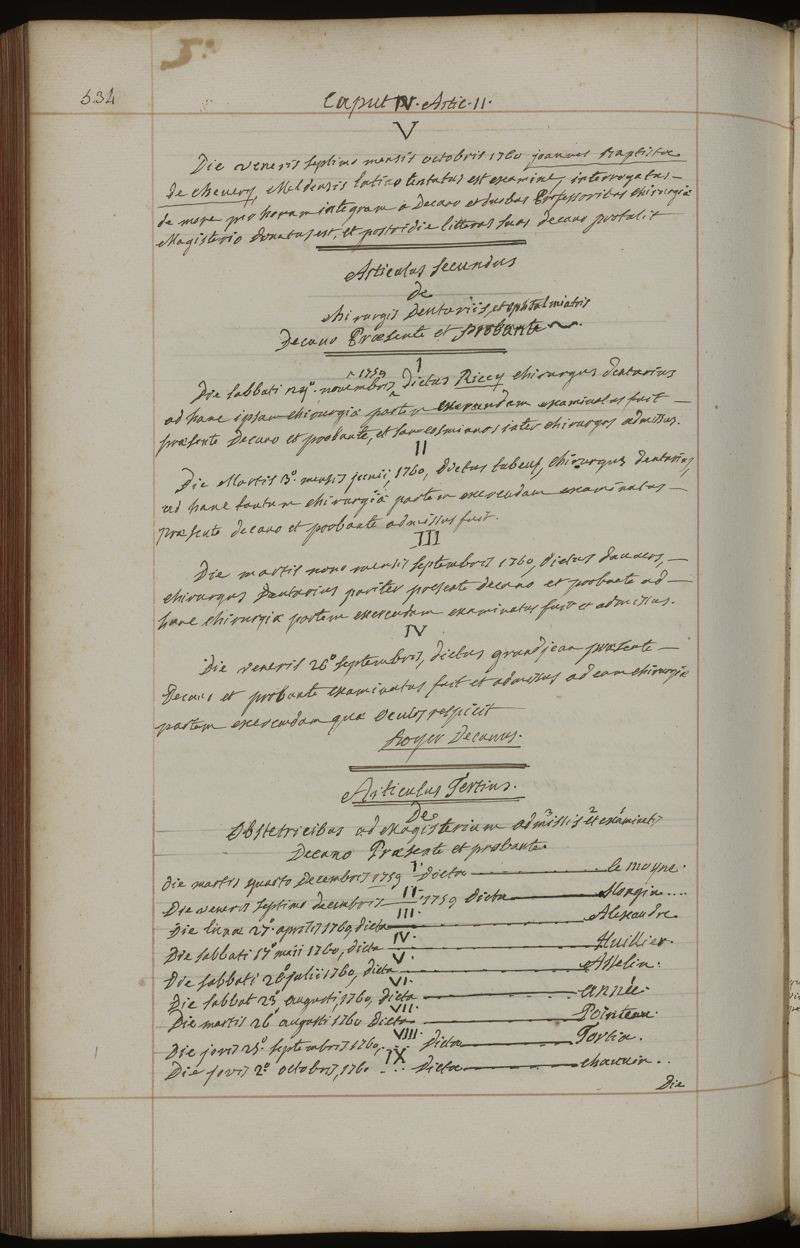 534
Caput IV. Artic. II.
V
Die veneris septimo mensis octobris 1760 joannes Baptista
de Chevery, Meldensis latino tentatus est examine, interrogatus
de more pro horam integram a Decano et duobus Professoribus chirurgiæ
Magisterio Donatus est, et postridie litteras suas decano protulit
Articulus secundus
de
chirurgis Dentariis, et ophtalmiatris
Decano Præsente et probante
I
Die sabbati 24°. novembris ^1759 dictus Riccy chirurgus dentarius
ad hanc ipsam chirurgiæ partem exercendam examinatus fuit
præsente Decano et probante, et san-cosmianos inter chirurgos admissus.
II
Die Martis 3°. mensis junii, 1760, Dictus tubeuf, chirurgus dentarius,
ad hanc tantum chirurgiæ partem exercendam examinatus
præsente decano et probante admissus fuit.
III
Die martis nono mensis septembris 1760, dictus dauvers,
chirurgus Dentarius pariter præsente decano et probante ad
hanc chirurgiæ partem exercendam examinatus fuit et admissus.
IV
Die veneris 26° septembris, dictus grandjean præsente
Decano et probante examinatus fuit et admissus ad eam chirurgiæ
partem exercendam quæ oculos respicit
Boyer Decanus.
Articulus Tertius.
De
Obstetricibus ad Magisterium admissis 3 et 2 examinatis
Decano Præsente et probante
I.
Die martis quarto Decembris 1759 Dicta le moyne.
II
Die veneris septimo decembris 1759 Dicta Margin....
III.
Die lunæ 27° aprilis 1760, dicta Alexandre
IV.
Die sabbati 17° maii 1760, dicta Lhuillier.
V.
Die sabbati 26° julii 1760, dicta Asselin.
VI.
Die sabbat 23°. augusti, 1760, dicta année.
VII.
Die martis 26° augusti 1760 Dicta Pointeau.
VIII.
Die jovis 25°. septembris 1760, Dicta Tortin.
IX
Die jovis 2° octobris, 1760 ... Dicta chauvin..
Die